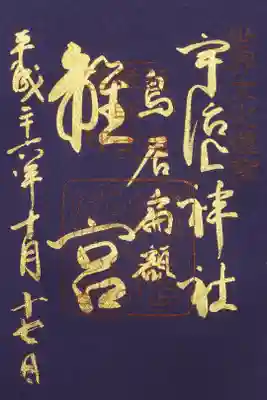 宇治上神社
鳥居扁額
離宮
平成二十六年十月十七日